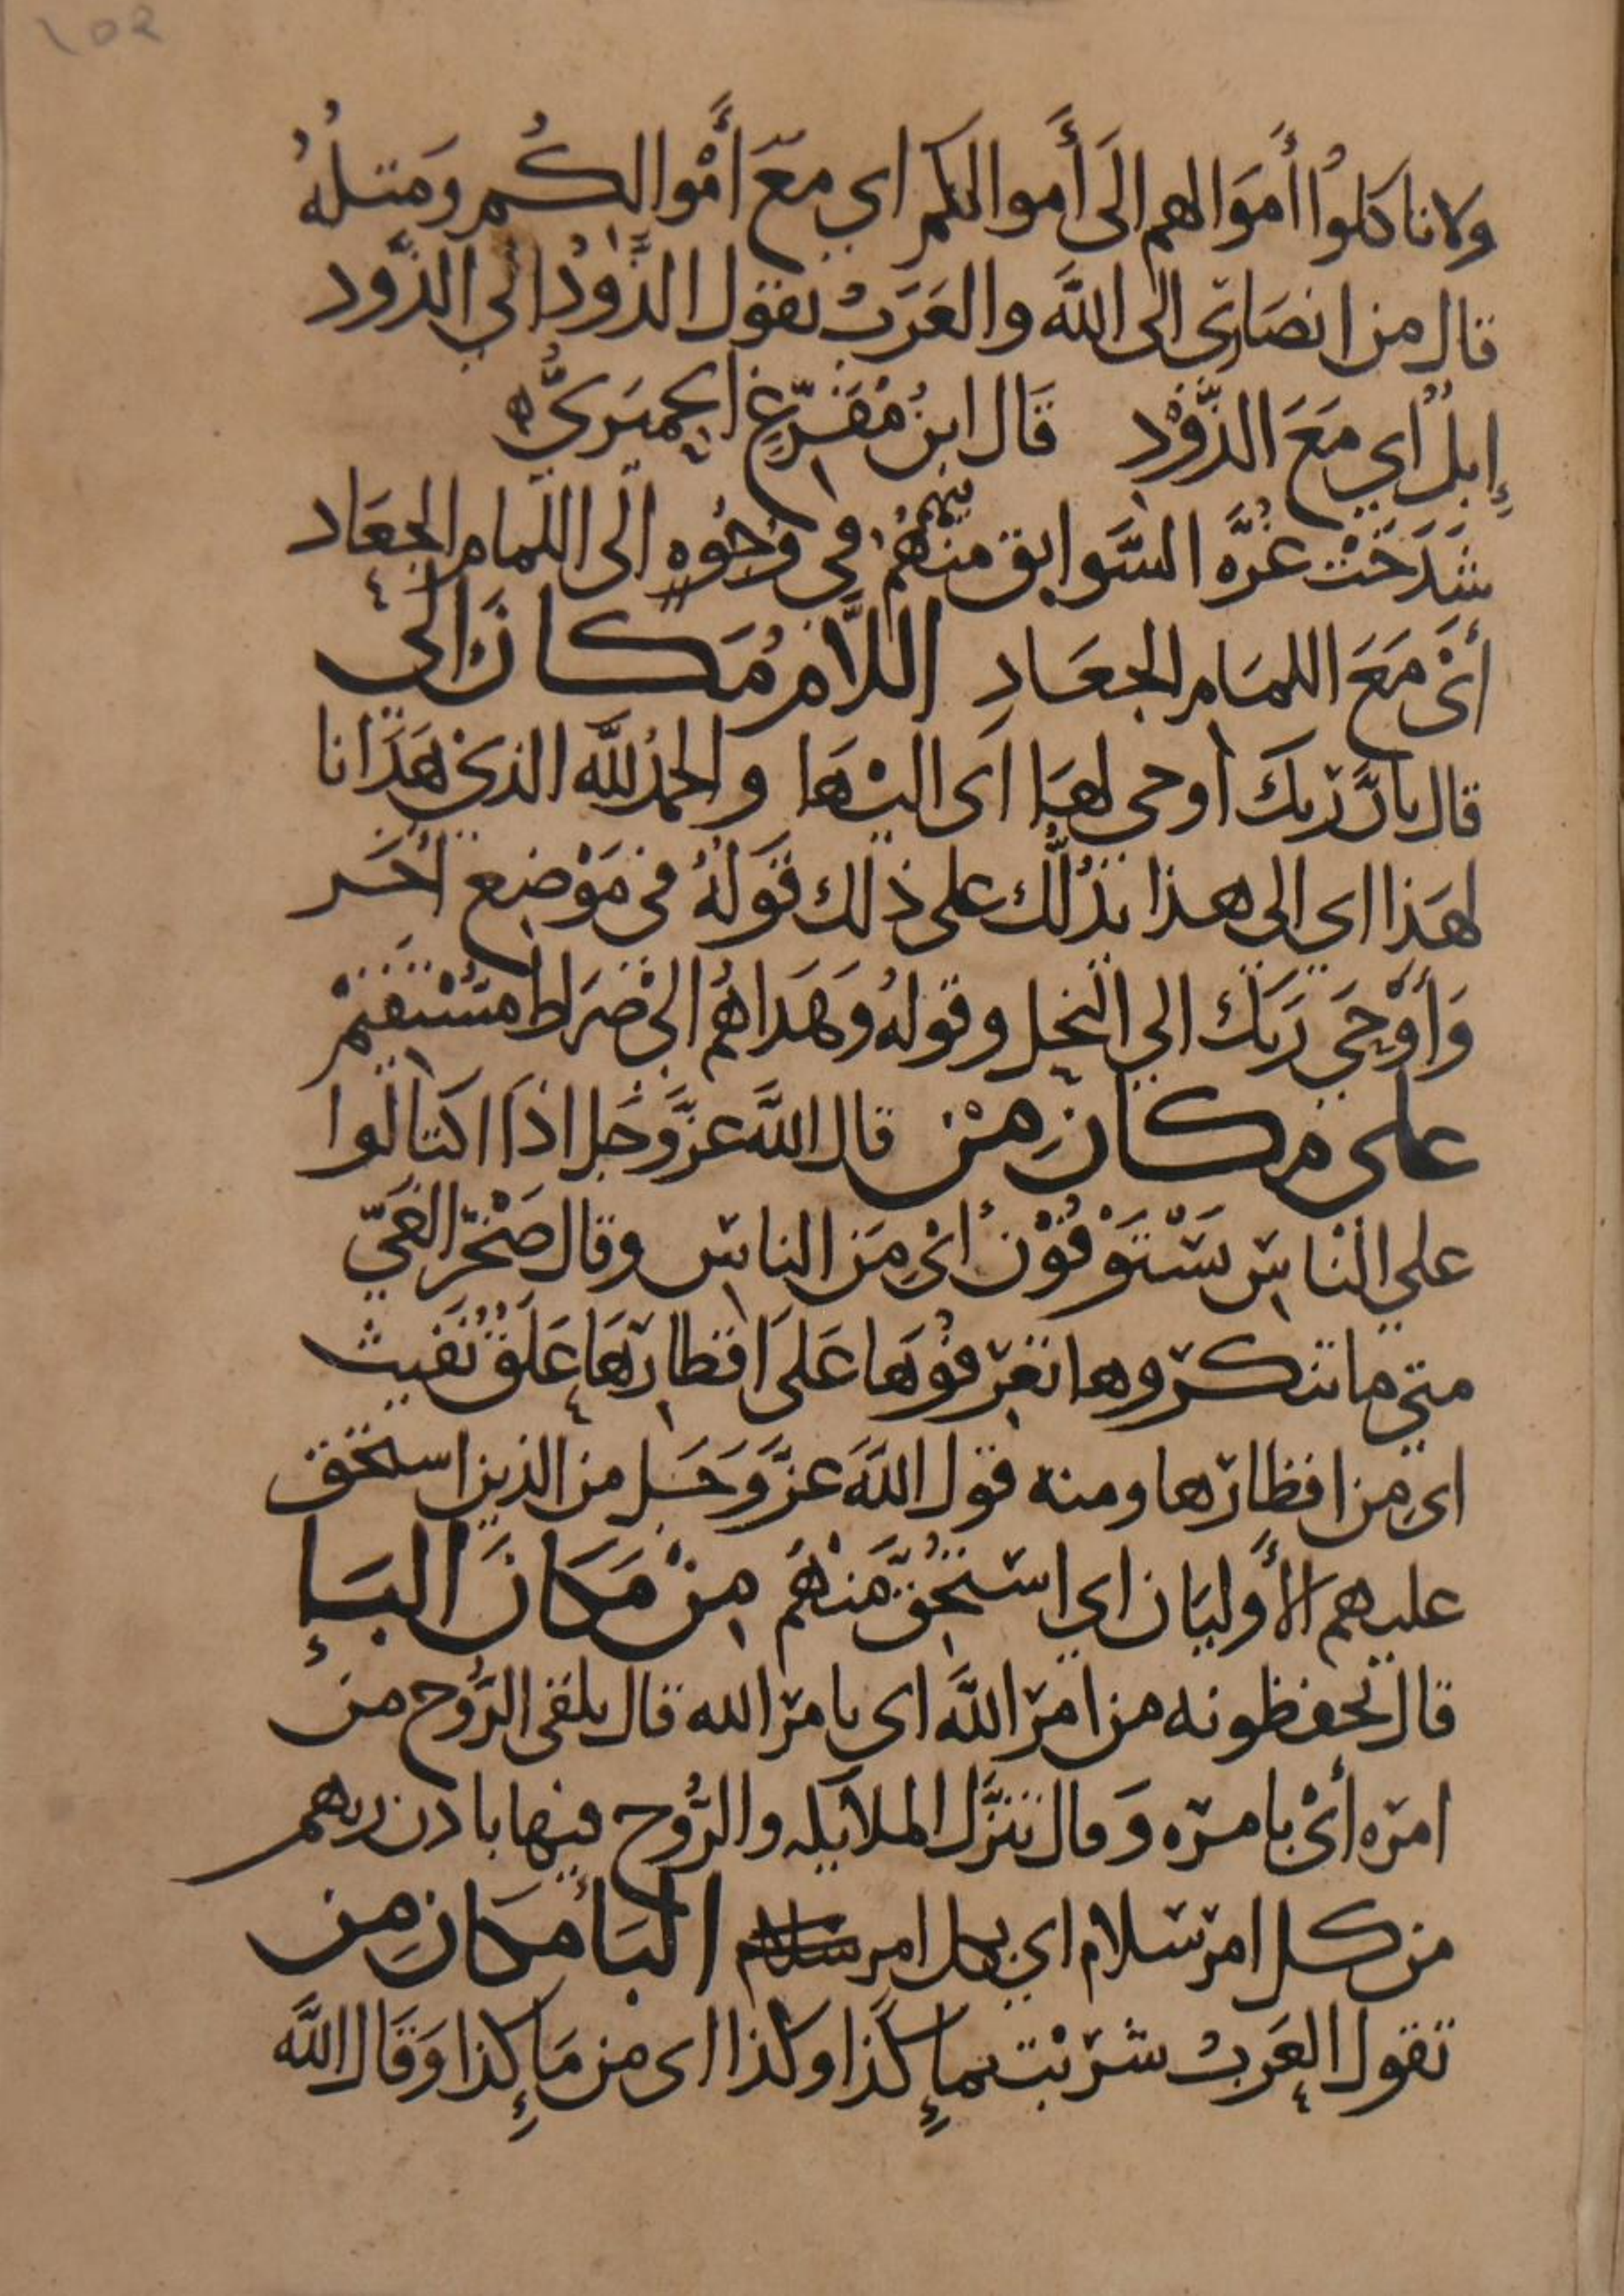 102
ولا تاكلوا أموالهم إلى أموالكم اي مع أموالكم ومثله
قال من انصاري الى الله والعرب تقول الذود الي الذود
إبل اي مع الذود قال ابن مفرغ الحميري
شدخت غرة السوابق منهم في وجوه الى اللمام الجعاد
أي مع اللمام الجعاد اللام مكان الى
قال بان ربك أوحى لها اي اليها والحمد لله الذي هدانا
لهذا اي الي هذا يدلك على ذلك قوله في موضع اخر
وأوحي ربك الي النحل وقوله وهداهم الي صراط مستقيم
على مكان من قال الله عز وجل اذا اكتالوا
علي الناس يستوفون أي من الناس وقال صخر الغي
متى ما تنكروها تعرفوها على اقطارها علق نفيث
اي من اقطارها ومنه قول الله عز وجل من الذين استحق
عليهم الأوليان اي استحق منهم من مكان الباء
قال تحفظونه من امر الله اي بامر الله قال يلقى الروح من
امره أي بامره وقال تنزل الملائكه والروح فيها باذن ربهم
من كل امر سلام اي بكل امر سلام الباء مكان من
تقول العرب شربت بماء كذا وكذا اى من ماء كذا وقال الله